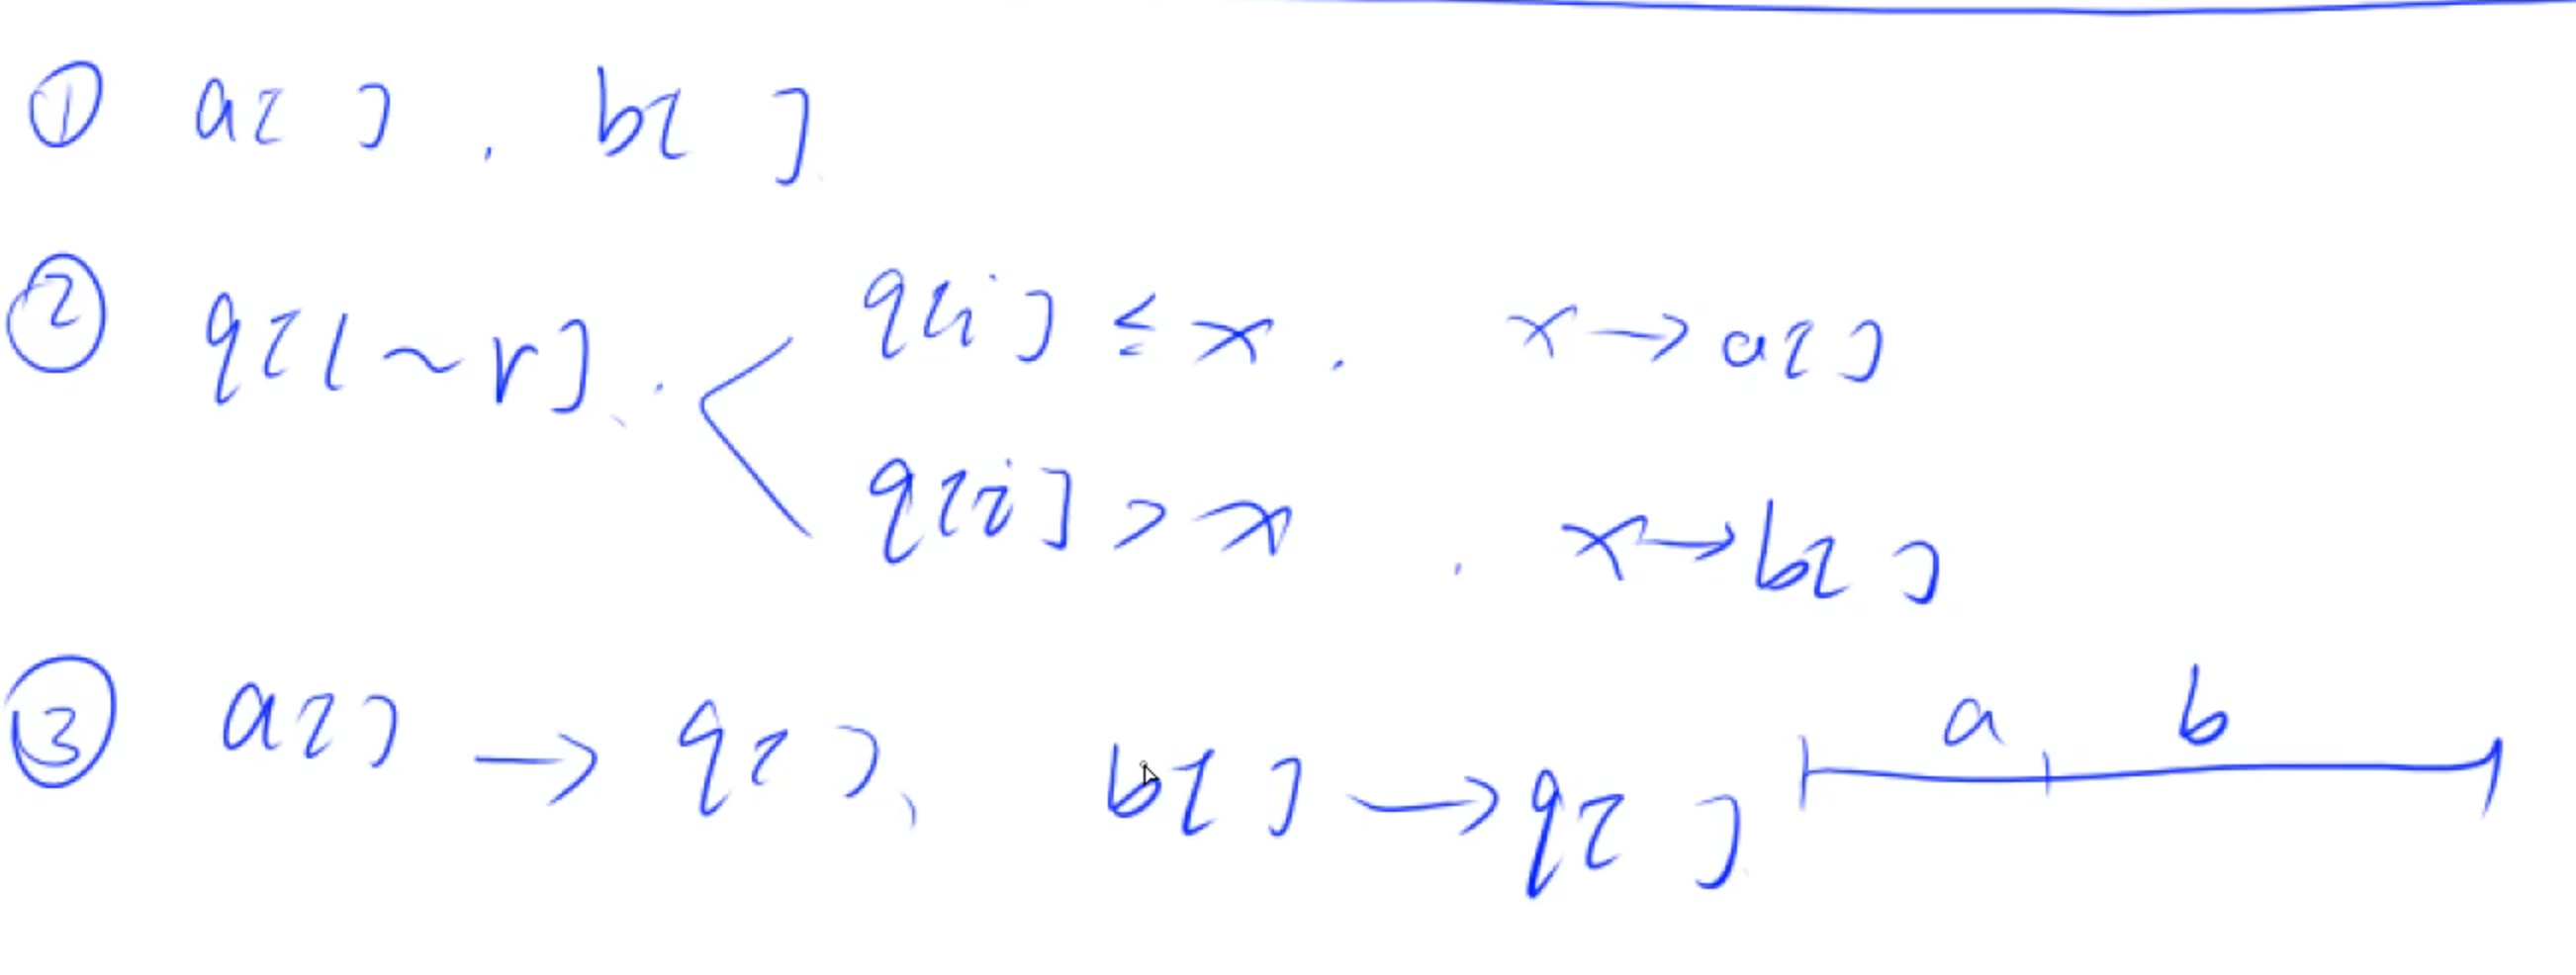 ① a[ ] , b[ ]
② q[l~r] . q[i] ≤ x . x → a[ ]
q[i] > x . x → b[ ]
③ a[ ] → q[ ] 、 b[ ] → q[ ] a b